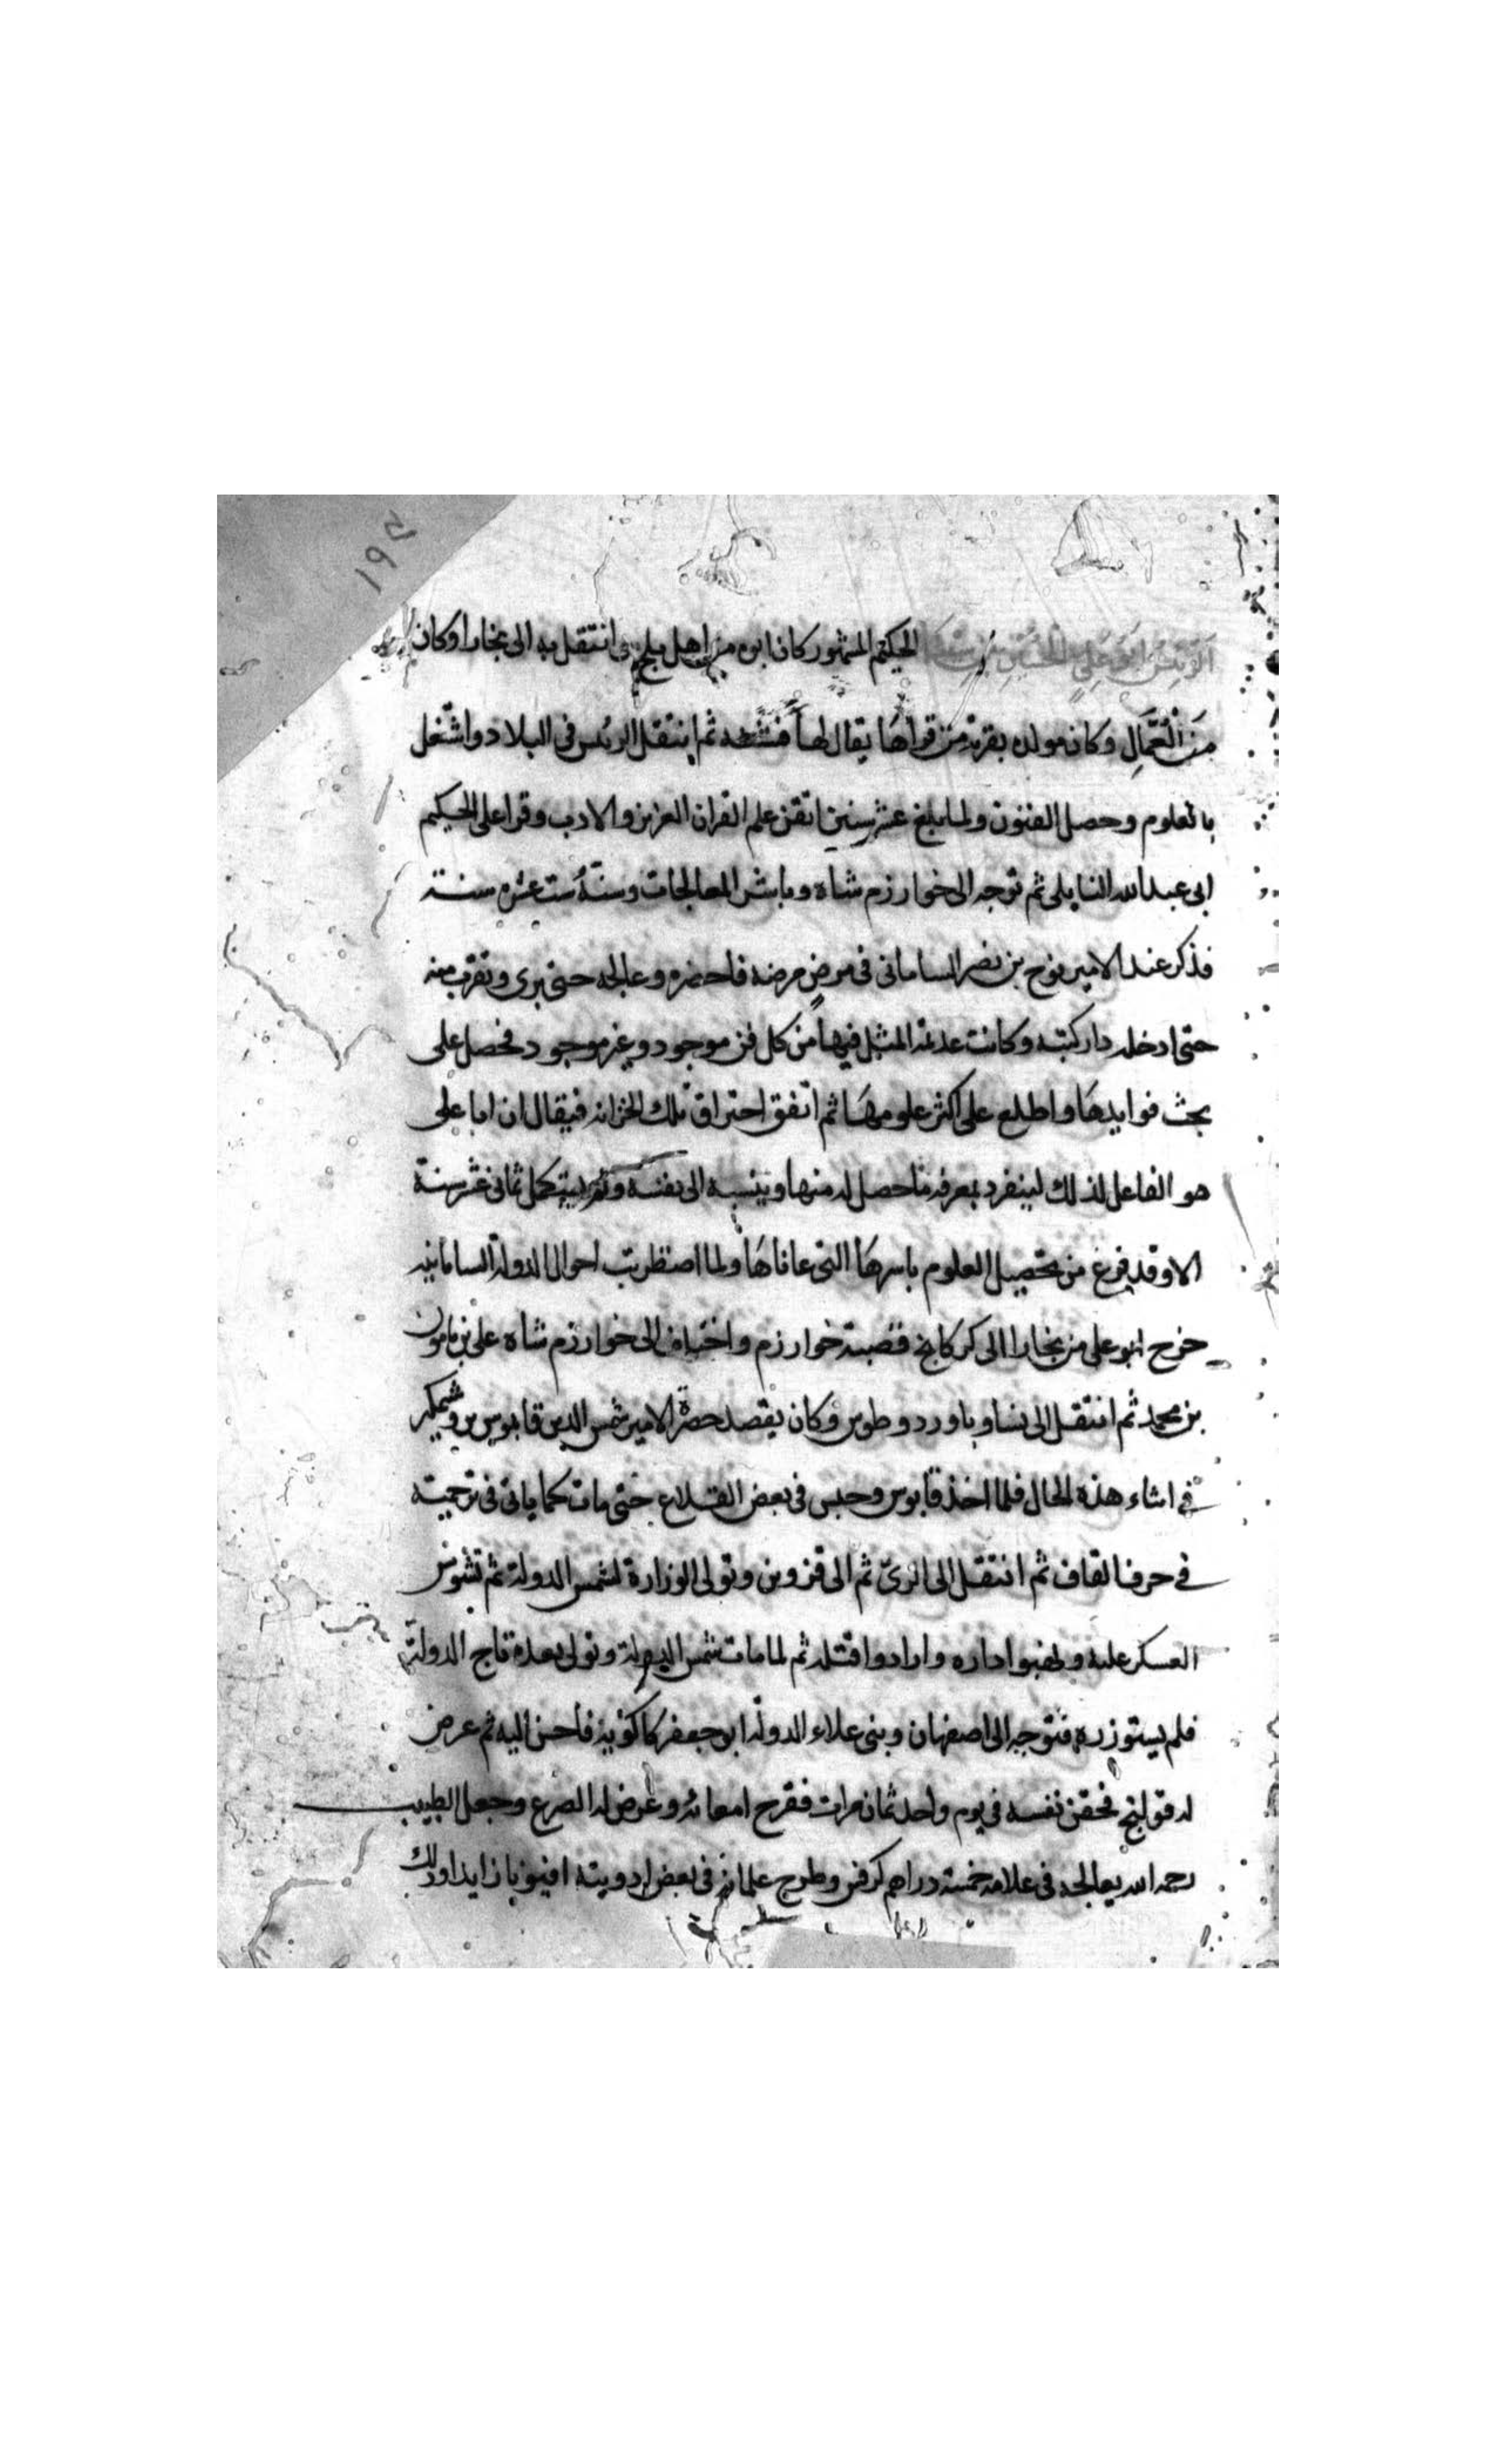 ١٩٥
الرئيس ابو علي الحسين بن سينا الحكيم المشهور كان ابوه من اهل بلخ انتقل به الى بخارا وكان
من العمال وكان مولده بقرية من قراها يقال لها ثم انتقل الرئس فى البلاد واشتغل
بالعلوم وحصل الفنون ولما بلغ عشر سنين اتقن علم القران العزيز والادب وقرا على الحكيم
ابى عبد الله الناىلى ثم توجه الى خوارزم شاه وباشر المعالجات وسنّه ست عشره سنة
فذكر عند الامير نوح بن نصر السامانى فى مرض مرضه فاحضره وعالجه حتى برى وتقرب منه
حتى ادخله دار كتبه وكانت عديمة المثل فيها من كل فن موجود وغير موجود فحصل على
بحث فوايدها واطلع على اكثر علومها ثم اتفق احتراق تلك الخزانه فيقال ان ابا على
هو الفاعل لذلك لينفرد بمعرفه ما حصل له منها وينسبه الى نفسه ولم يستكمل ثمانى عشر سنة
الا وقد فرغ من تحصيل العلوم باسرها التى عاناها ولما اضطربت احوال الدولة السامانيه
خرج ابو على من بخارا الى كركانج قصبة خوارزم واختلف الى خوارزم شاه على بن مامون
بن محمد ثم انتقل الى نسا وباورد وطوس وكان يقصد حضرة الامير شمس الدين قابوس بن وشمكير
فى اثناء هذه الحال فلما اخذ قابوس وحبس فى بعض القلاع حتى مات كما ياتى فى ترجمته
فى حرف القاف ثم انتقل الى الرىّ ثم الى قزوين وتولى الوزارة لشمس الدولة ثم تشوش
العسكر عليه ونهبوا داره وارادوا قتله ثم لما مات شمس الدولة وتولى بعده تاج الدولة
فلم يستوزره فتوجه الى اصفهان وبنى علاء الدولة ابو جعفر كاكويه فاحسن اليه ثم عرض
له قولنج فحقن نفسه فى يوم واحد ثمان مرات فقرح امعائه وعرض له الصرع وجعل الطبيب
رحمه الله يعالجه فى علامه خمسة دراهم كرفس وطرح غلمانه فى بعض ادويته افيونا زايدا وذلك